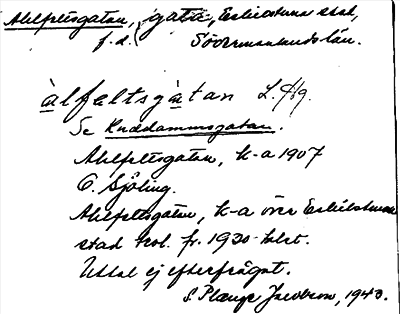 Ahlfeltsgatan, gata, Eskilstuna stad,
f.d. Södermanlands län.
àlfæltsgàtan L. Hg.
Se Kruddammsgatan.
Ahlfeltsgatan, k-a 1907
C. Sjöling.
Ahlfeltsgatan, k-a över Eskilstuna
stad kol. fr. 1930-talet.
Uttal ej efterfrågat.
S. Jacobson, 1943.